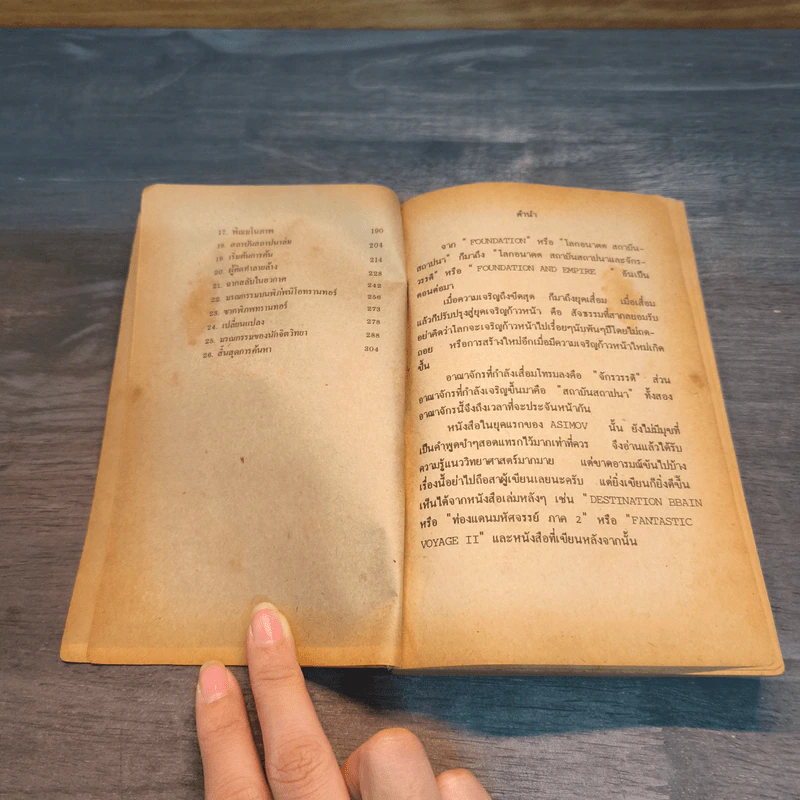 17. พิณมโนภาพ 190
18. สถาบันสถาปนาดับ 204
19. เริ่มต้นการค้น 214
20. ผู้คิดทำลายล้าง 228
21. ฉากสลับในอวกาศ 242
22. มรณกรรมบนพิภพนีโอทรานทอร์ 256
23. ซากพิภพทรานทอร์ 273
24. เปลี่ยนแปลง 278
25. มรณกรรมของนักจิตวิทยา 288
26. สิ้นสุดการค้นหา 304
คำนำ
จาก "FOUNDATION" หรือ "โลกอนาคต สถาบัน-
สถาปนา" ก็มาถึง "โลกอนาคต สถาบันสถาปนาและจักร-
วรรดิ" หรือ "FOUNDATION AND EMPIRE " อันเป็น
ตอนต่อมา
เมื่อความเจริญถึงขีดสุด ก็มาถึงยุคเสื่อม เมื่อเสื่อม
แล้วก็ปรับปรุงสู่ยุคเจริญก้าวหน้า คือ สัจธรรมที่สากลยอมรับ
อย่าคิดว่าโลกจะเจริญก้าวหน้าไปเรื่อยๆนับพันๆปีโดยไม่ถด-
ถอย หรือการสร้างใหม่อีกเมื่อมีความเจริญก้าวหน้าใหม่เกิด
ขึ้น
อาณาจักรที่กำลังเสื่อมโทรมลงคือ "จักรวรรดิ" ส่วน
อาณาจักรที่กำลังเจริญขึ้นมาคือ "สถาบันสถาปนา" ทั้งสอง
อาณาจักรนี้จึงถึงเวลาที่จะประจันหน้ากัน
หนังสือในยุคแรกของ ASIMOV นั้น ยังไม่มีมุขที่
เป็นคำพูดขำๆสอดแทรกไว้มากเท่าที่ควร จึงอ่านแล้วได้รับ
ความรู้แนววิทยาศาสตร์มากมาย แต่ขาดอารมณ์ขันไปบ้าง
เรื่องนี้อย่าไปถือสาผู้เขียนเลยนะครับ แต่ยิ่งเขียนก็ยิ่งดีขึ้น
เห็นได้จากหนังสือเล่มหลังๆ เช่น "DESTINATION BBAIN
หรือ "ท่องแดนมหัศจรรย์ ภาค 2" หรือ "FANTASTIC
VOYAGE II" และหนังสือที่เขียนหลังจากนั้น